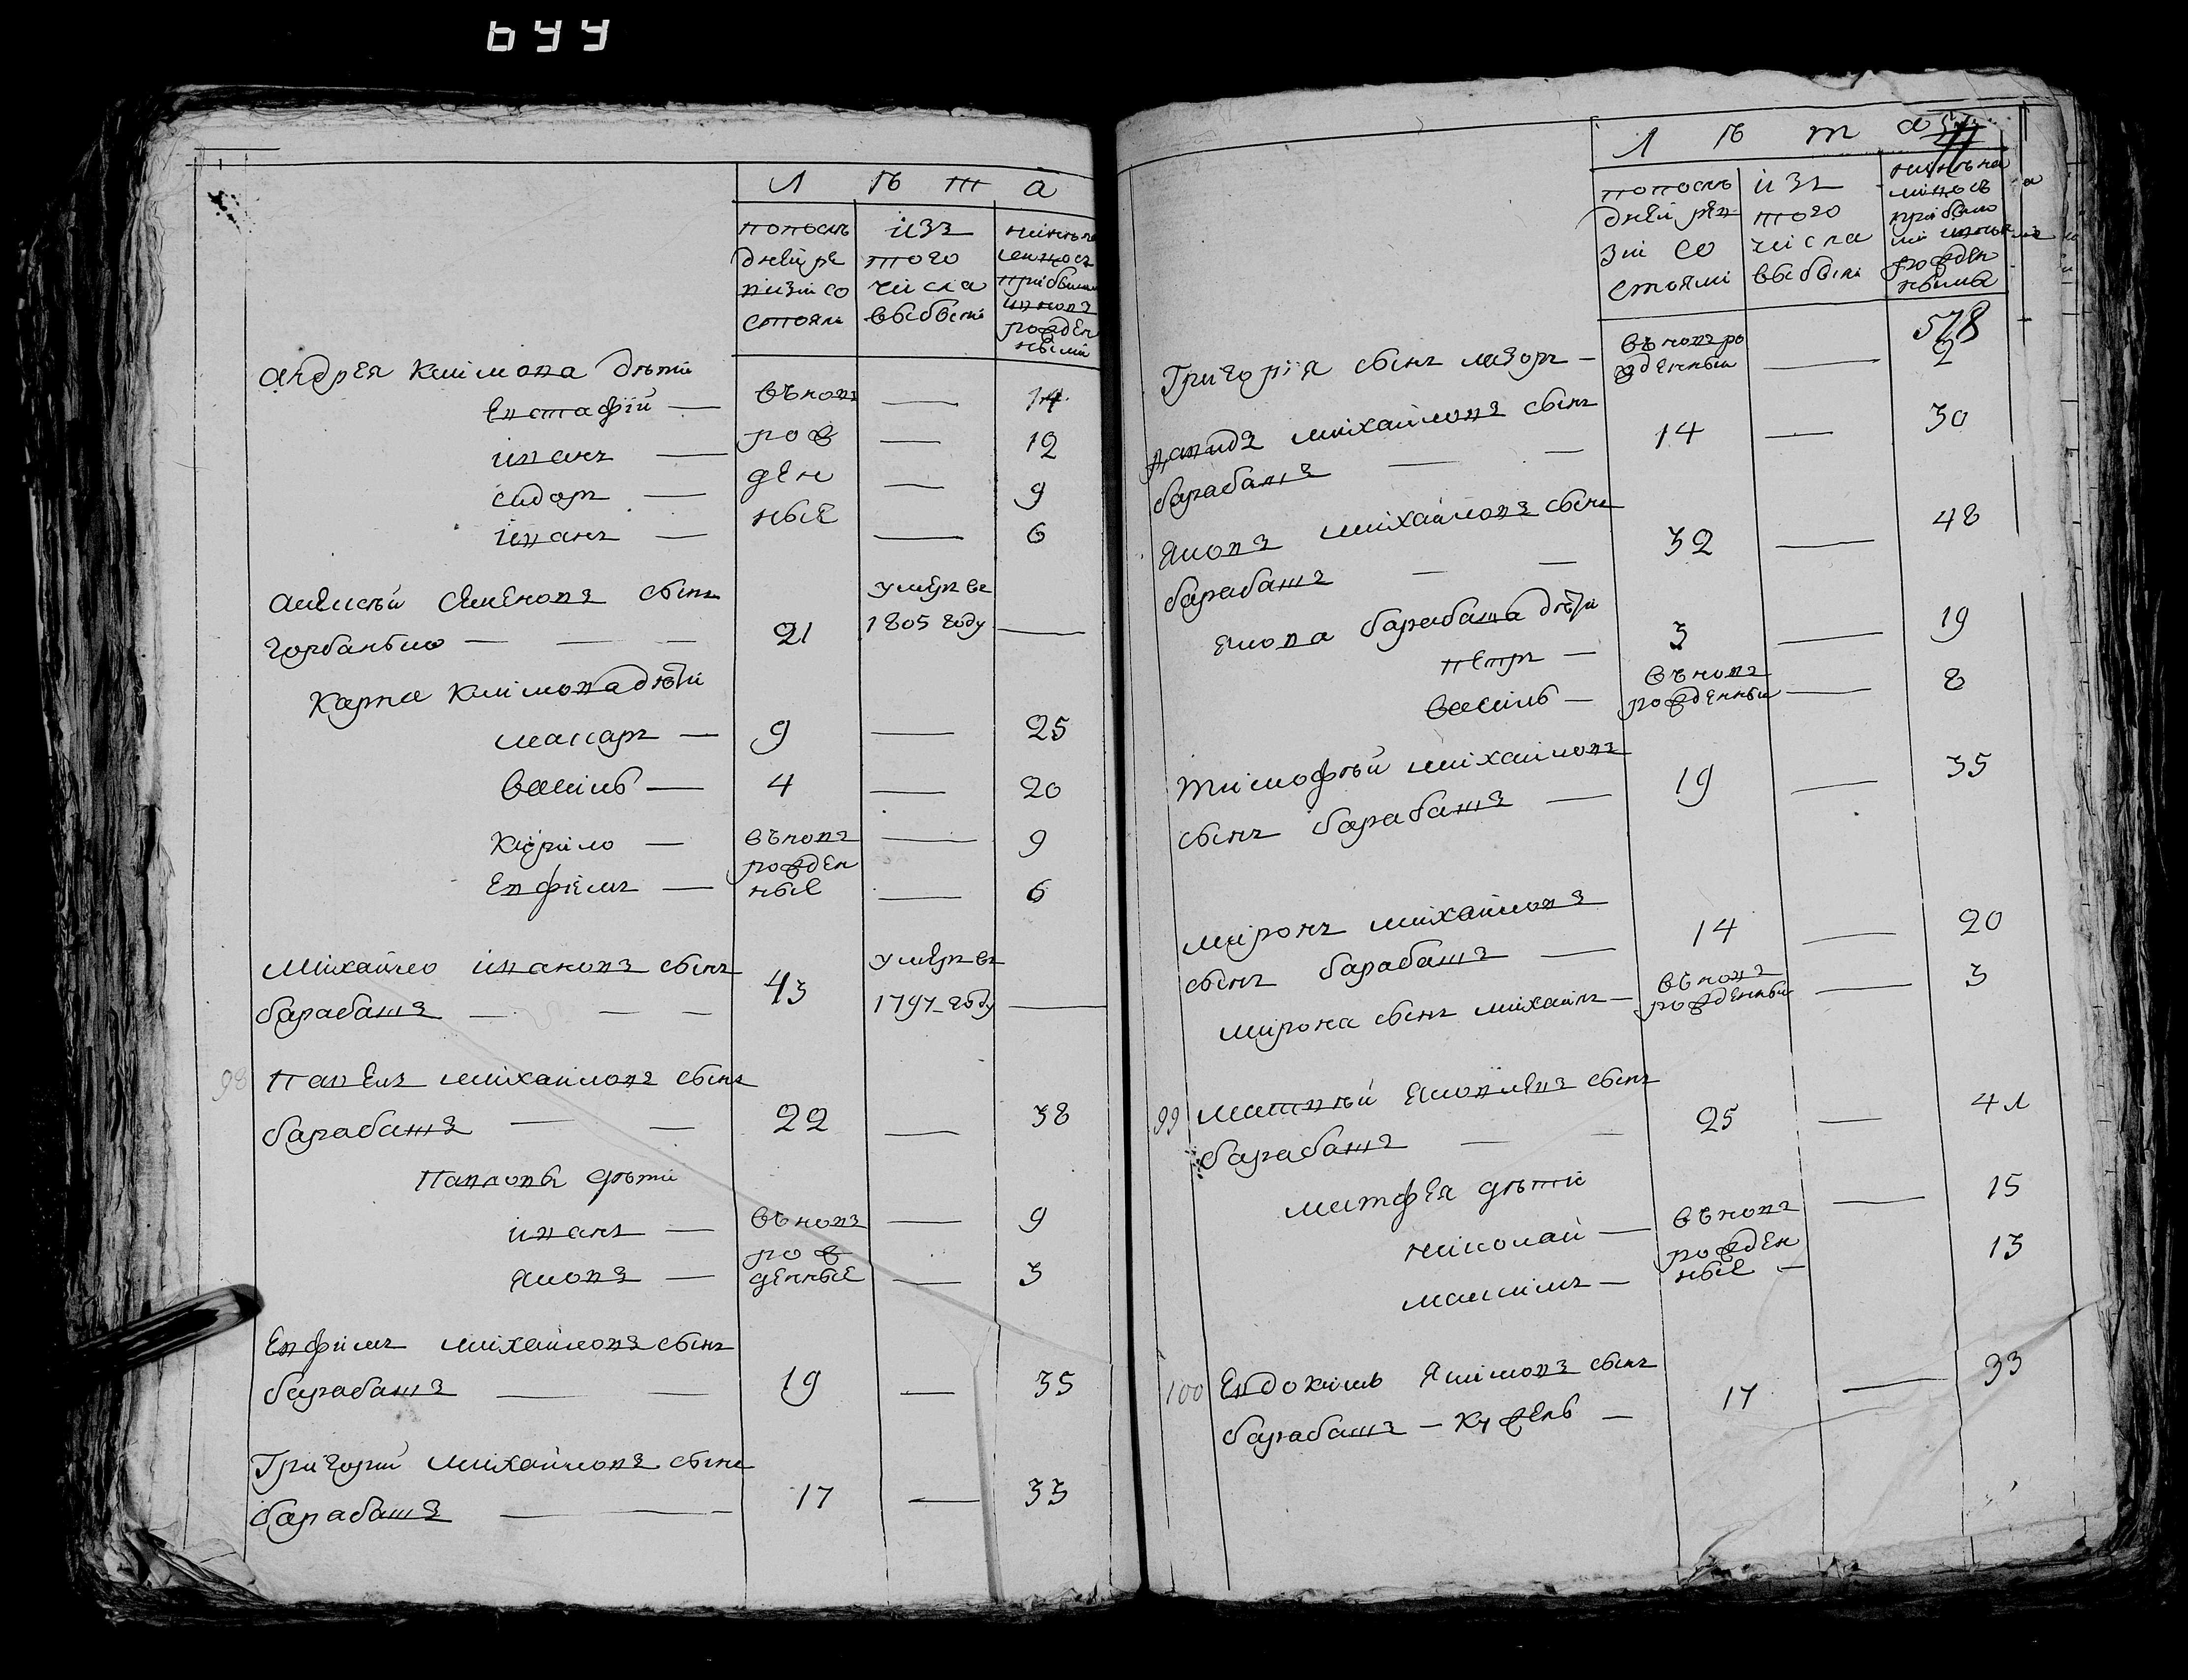 644
Л ѣ т а
попослѣ
дней ре
визіи со
стояли
изъ
того
числа
выбыли
нинѣ на
лицо съ
прибылыми
и вновь
рожден
ными
Андрея Климова дѣти
Евстафій — въновь — 14
иванъ — рож — 12
сидоръ — ден — 9
иванъ — ные — 6
Алексѣй Семеновъ сынъ умеръ въ
горбанько — — — 21 1805 году —
Карпа Климова дѣти
макаръ — 9 — 25
василь — 4 — 20
Кирило — въновь — 9
рожден
Евфимъ — ные — 6
Михайло ивановъ сынъ умеръ въ
барабашъ — — — 43 1797 году —
98 Павелъ михайловъ сынъ
барабашъ — — 22 — 38
Павловы дѣти
иванъ — въновь — 9
рож
яковъ — денные — 3
Евфимъ михайловъ сынъ
барабашъ — — 19 — 35
Григорій михайловъ сынъ
барабашъ — 17 — 33
Л ѣ т а
попослѣ
дней реви
зіи со
стояли
изъ
того
числа
выбыли
нинѣ на
лицо съ
прибылы
ми и вновь
рожден
ными
578
Григорія сынъ назаръ — вновь ро
жденный — 2
давидъ михайловъ сынъ
барабашъ — — 14 — 30
яковъ михайловъ сынъ
барабашъ — — 32 — 48
якова барабаша дѣти
петръ — 3 — 19
василь — въновь рожденный — 8
тимофѣй михайловъ
сынъ барабашъ — 19 — 35
миронъ михайловъ
сынъ барабашъ — 14 — 20
мирона сынъ михаилъ — въновь рожденный — 3
99 матвѣй яковлевъ сынъ
барабашъ — — 25 — 41
матфея дѣти
николай — въновь — 15
рожден
максимъ — ные — 13
100 Евдокимъ якимовъ сынъ
барабашъ — кужель — 17 — 33